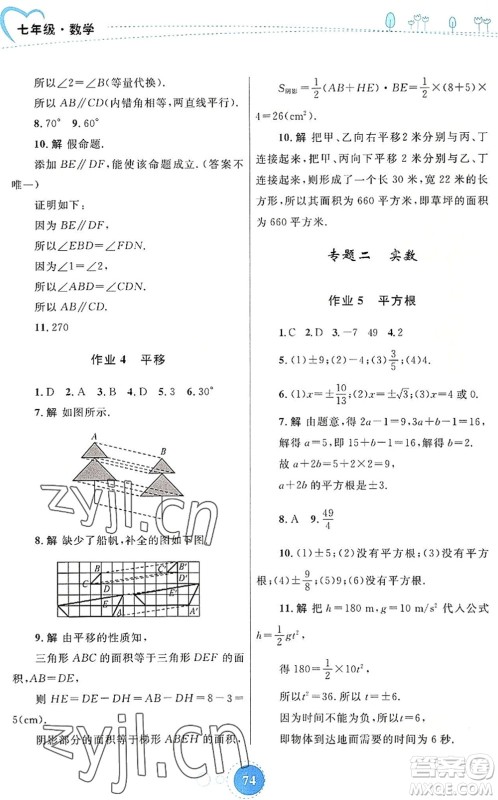 七年级·数学
所以∠2=∠B(等量代换).
所以 AB∥CD(内错角相等,两直线平行).
8.70° 9.60°
10.解 假命题.
添加 BE∥DF,能使该命题成立.(答案不
唯一)
证明如下:
因为 BE∥DF,
所以∠EBD=∠FDN.
因为∠1=∠2,
所以∠ABD=∠CDN.
所以 AB∥CD.
11.270
作业 4 平移
1.D 2.A 3.D 4.D 5.3 6.30°
7.解 如图所示.
A
B
8.解 缺少了船帆,补全的图如下图.
B
C
D
E
A
B′
C′
D′
E′
A′
9.解 由平移的性质知,
三角形 ABC 的面积等于三角形 DEF 的面
积,
则 HE=DE-DH=AB-DH=8-3=
5(cm).
阴影部分的面积等于梯形 ABEH 的面积.
S阴影=1/2(AB+HE)·BE=1/2×(8+5)×
4=26(cm²).
10.解 把甲、乙向右平移 2 米分别与丙、丁
连接起来,把甲、丙向下平移 2 米分别与乙、丁
连接起来,则构成了一个长 30 米,宽 22 米的长
方形,所以其面积为 660 平方米,即草坪的面积
为 660 平方米.
专题二 实数
作业 5 平方根
1.C 2.D 3.-7 49 4.2
5.(1)±9;(2)-4;(3)3/5;(4)4.
6.(1)x=±10/13;(2)x=±√3;(3)x=4或0.
7.解 由题意,得 2a-1=9,3a+b-1=16,
解得 a=5,即 15+b-1=16,解得 b=2.
故 a+2b=5+2×2=9.
a+2b 的平方根为±3.
8.A 9.49/4
10.(1)±5;(2)没有平方根;(3)没有平方
根;(4)±9/8.
11.解 把 h=180 m,g=10 m/s² 代人公式
h=1/2gt²,
得 180=1/2×10t².
所以 t²=36,所以 t=±6.
因为时间不能为负,所以 t=6.
即物体到达地面需要的时间为 6 s.
zyjl.cn
zyjl.cn
74
答案圈